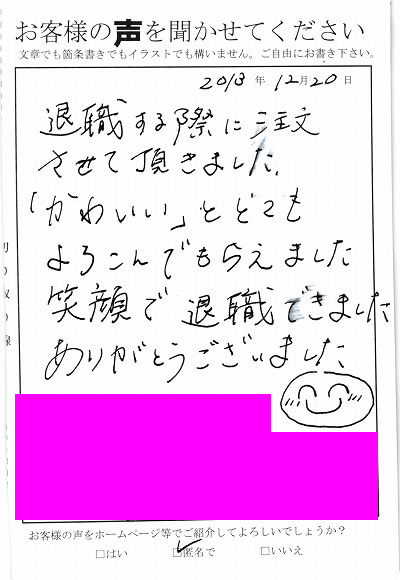 お客様の声を聞かせてください
文章でも箇条書きでもイラストでも構いません。ご自由にお書き下さい。
2013年12月20日
退職する際に注文
させて頂きました。
「かわいい」ととても
よろこんでもらえました
笑顔で退職できました
ありがとうございました
切り取り線
お客様の声をホームページ等でご紹介してよろしいでしょうか？
□はい ☑匿名で □いいえ